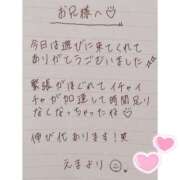 お兄様へ♡
今日は遊びに来てくれて
ありがとうございました
緊張がほぐれてイチャイ
チャが加速して時間足り
なくなっちゃったね
伸び代あります！笑
えまより